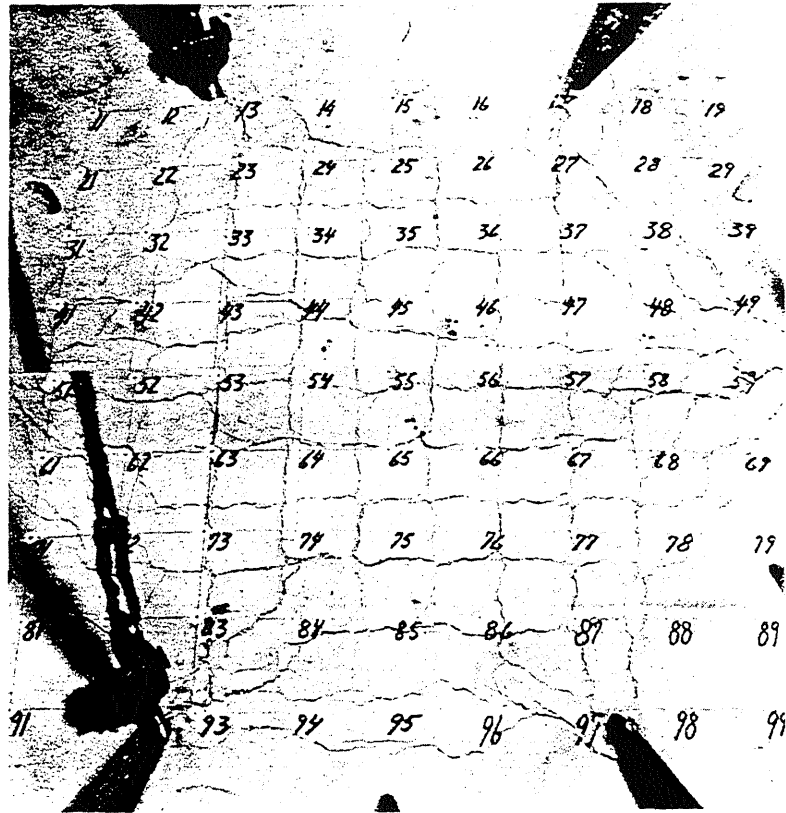 11 12 13 14 15 16 18 19
21 22 23 24 25 26 27 28 29
31 32 33 34 35 36 37 38 39
41 42 43 44 45 46 47 48 49
51 52 53 54 55 56 57 58 59
61 62 63 64 65 66 67 68 69
73 74 75 76 77 78 79
81 83 84 85 86 87 88 89
91 93 94 95 96 97 98 99